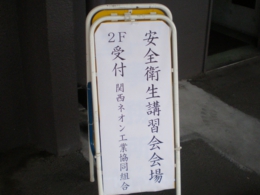 安全衛生講習会会場
2F受付 関西ネオン工業協同組合